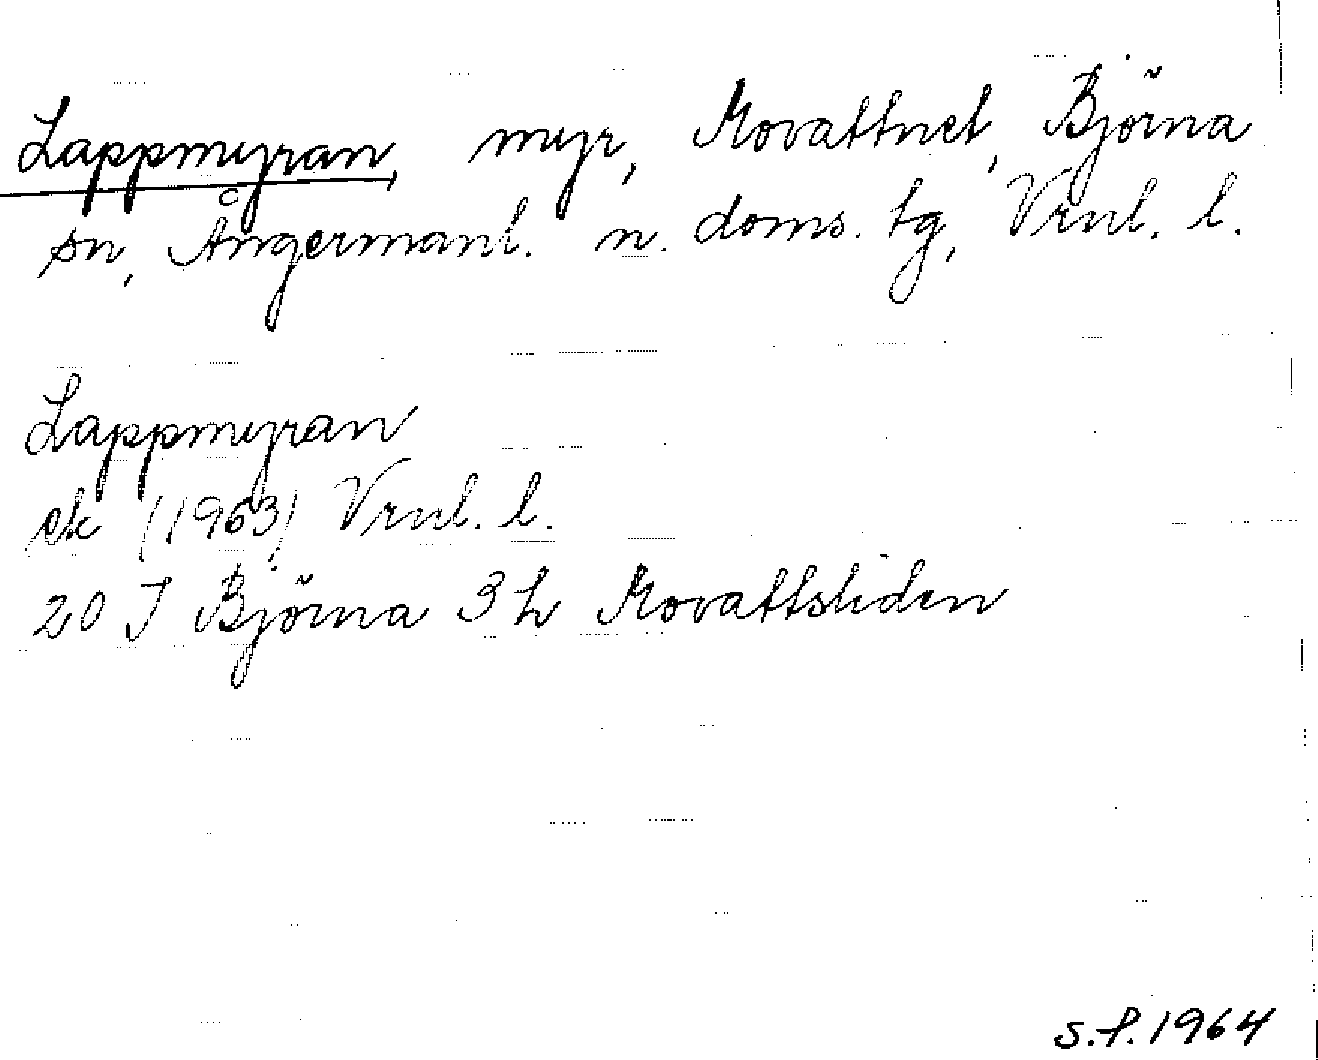 Lappmyran, myr, Movattnet, Björna
sn, Ångermanl. n. doms. tg, Vrnl. l.
Lappmyran
ek (1963) Vrnl. l.
20 J Björna 3 h Movattsliden
S.f. 1964